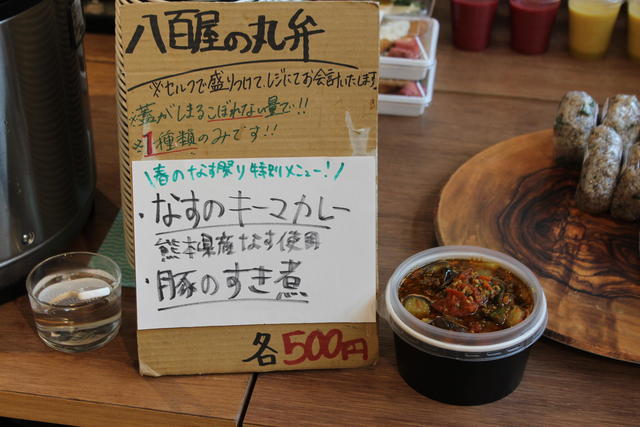 八百屋の丸弁
※セルフで盛りつけて、レジにてお会計いたします
※蓋がしまるこぼれない量で!!
※1種類のみです!!
\春のなす祭り特別メニュー!/
・なすのキーマカレー
熊本県産なす使用
・豚のすき煮
各500円